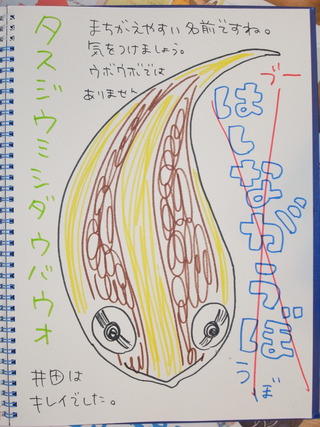 まちがえやすい名前ですね。
気をつけましょう。
ウボウボでは
ありません
ブー
はしながうぼ
うぼ
タスジウミシダウバウオ
井田は
キレイでした。